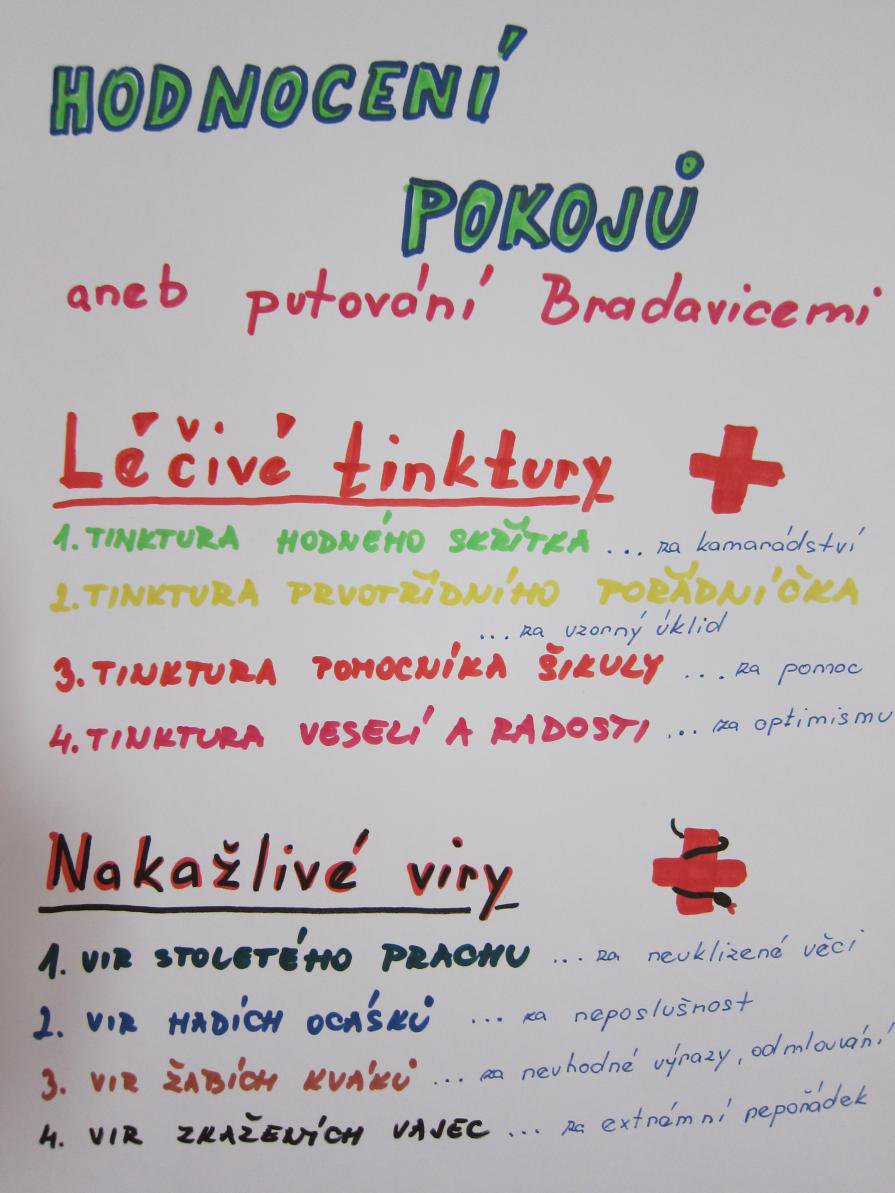 HODNOCENÍ
POKOJŮ
aneb putování Bradavicemi
Léčivé tinktury
1. TINKTURA HODNÉHO SKŘÍTKA ... za kamarádství
2. TINKTURA PRVOTŘÍDNÍHO POŘÁDNÍČKA
... za vzorný úklid
3. TINKTURA POMOCNÍKA ŠIKULY ... za pomoc
4. TINKTURA VESELÍ A RADOSTI ... za optimismu
Nakažlivé viry
1. VIR STOLETÉHO PRACHU ... za neuklizené věci
2. VIR HADÍCH OCÁSKŮ ... za neposlušnost
3. VIR ŽABÍCH KVÁKŮ ... za nevhodné výrazy, odmlouvání
4. VIR ZKAŽENÝCH VAJEC ... za extrémní nepořádek